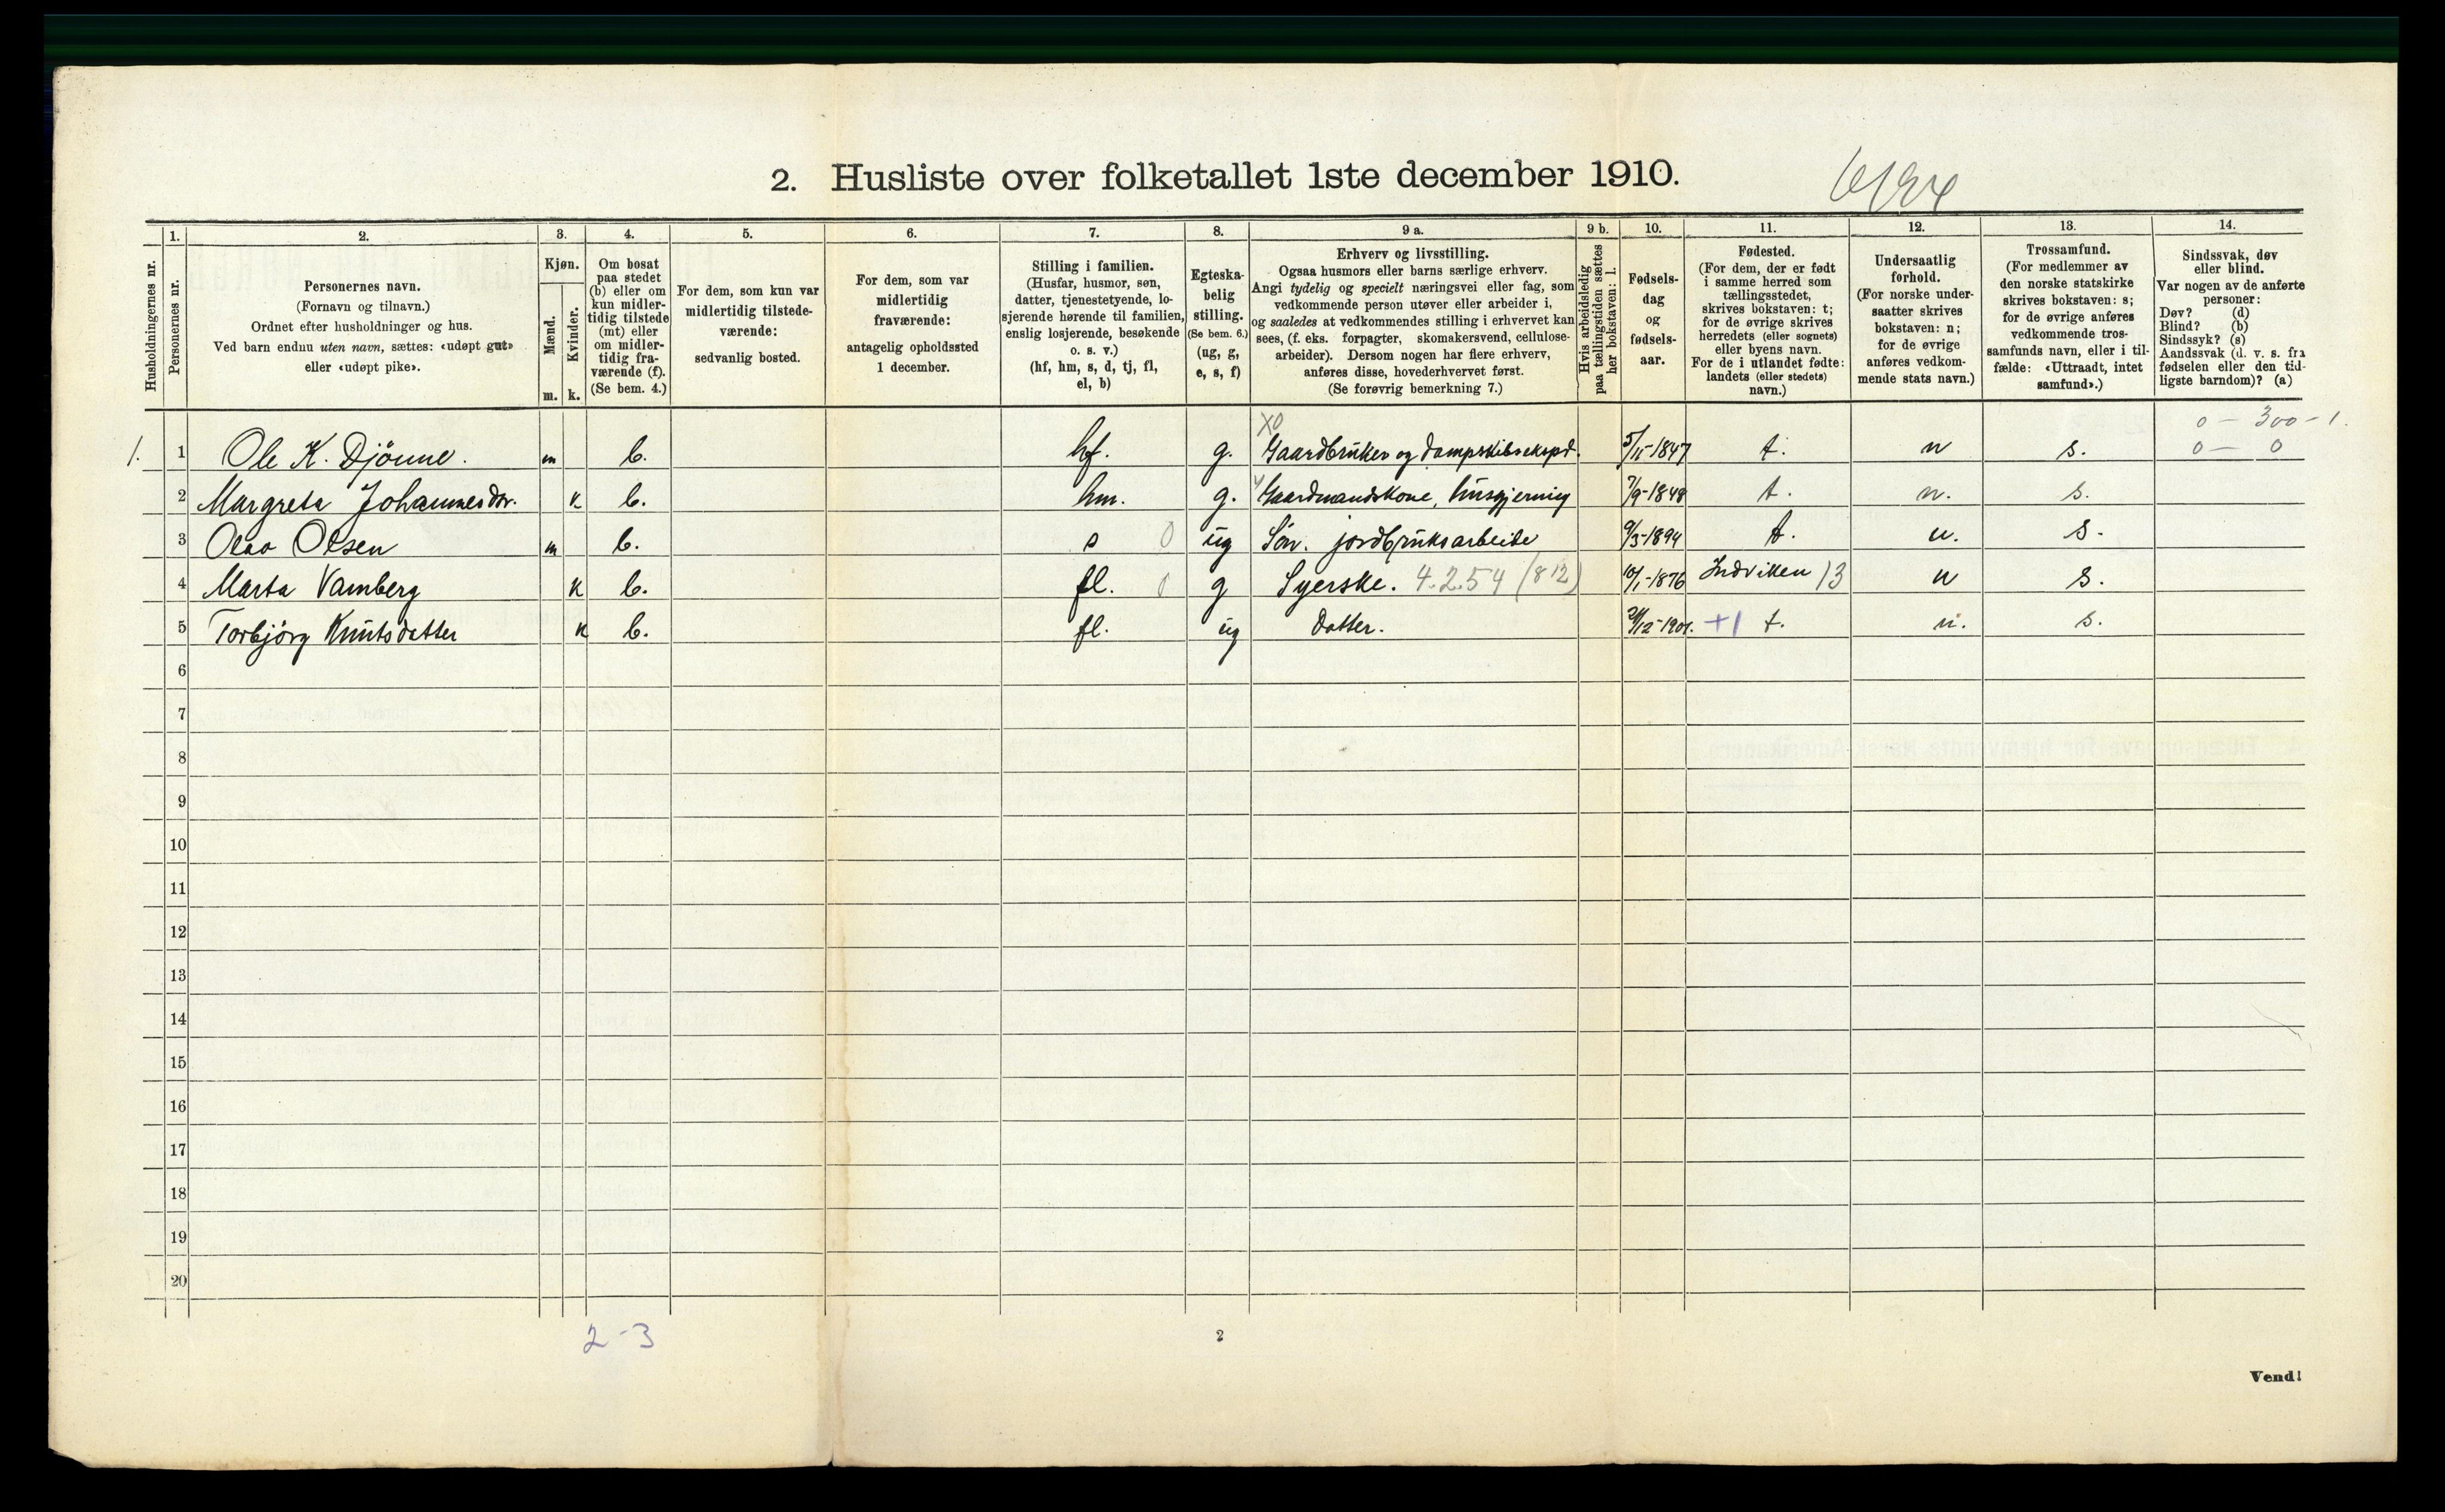 2. Husliste over folketallet 1ste december 1910.
Husholdningernes nr.
1.
Personernes nr.
2.
Personernes navn.
(Fornavn og tilnavn.)
Ordnet efter husholdninger og hus.
Ved barn endnu uten navn, sættes: «udøpt gut»
eller «udøpt pike».
3.
Kjøn.
Mænd.
Kvinder.
m. k.
4.
Om bosat
paa stedet
(b) eller om
kun midler-
tidig tilstede
(mt) eller
om midler-
tidig fra-
værende (f).
(Se bem. 4.)
5.
For dem, som kun var
midlertidig tilstede-
værende:
sedvanlig bosted.
6.
For dem, som var
midlertidig
fraværende:
antagelig opholdssted
1 december.
7.
Stilling i familien.
(Husfar, husmor, søn,
datter, tjenestetyende, lo-
sjerende hørende til familien,
enslig losjerende, besøkende
o. s. v.)
(hf, hm, s, d, tj, fl,
el, b)
8.
Egteska-
belig
stilling.
(Se bem. 6.)
(ug, g,
e, s, f)
9 a.
Erhverv og livsstilling.
Ogsaa husmors eller barns særlige erhverv.
Angi tydelig og specielt næringsvei eller fag, som
vedkommende person utøver eller arbeider i,
og saaledes at vedkommendes stilling i erhvervet kan
sees, (f. eks. forpagter, skomakersvend, cellulose-
arbeider). Dersom nogen har flere erhverv,
anføres disse, hovederhvervet først.
(Se forøvrig bemerkning 7.)
9 b.
Hvis arbeidsledig
paa tællingstiden sættes
her bokstaven: l.
10.
Fødsels-
dag
og
fødsels-
aar.
11.
Fødested.
(For dem, der er født
i samme herred som
tællingsstedet,
skrives bokstaven: t;
for de øvrige skrives
herredets (eller sognets)
eller byens navn.
For de i utlandet fødte:
landets (eller stedets)
navn.)
12.
Undersaatlig
forhold.
(For norske under-
saatter skrives
bokstaven: n;
for de øvrige
anføres vedkom-
mende stats navn.)
13.
Trossamfund.
(For medlemmer av
den norske statskirke
skrives bokstaven: s;
for de øvrige anføres
vedkommende tros-
samfunds navn, eller i til-
fælde: «Uttraadt, intet
samfund».)
14.
Sindssvak, døv
eller blind.
Var nogen av de anførte
personer:
Døv? (d)
Blind? (b)
Sindssyk? (s)
Aandssvak (d. v. s. fra
fødselen eller den tid-
ligste barndom)? (a)
X0 0 – 300 – 1.
1. 1 Ole K. Djönne. m b. hf. g. Gaardbruker og Dampskibsekspd. 5/11-1847 t. n s. 0 – 0
2 Margreta Johannesdtr. k b. hm. g. Gaardmandskone, husgjerning 7/9-1848 t. n. s.
3 Olav Olsen m b. s 0 ug Sön. jordbruksarbeide 9/3-1894 t. n. s.
4 Marta Vamberg k b. fl. 0 g Syerske. 4.2.54 (812) 10/1-1876 Indviken 13 n s.
5 Torbjörg Knutsdatter k b. fl. ug Datter. /12-1901. +1 t. n. s.
6
7
8
9
10
11
12
13
14
15
16
17
18
19
20
2-3
2
Vend!